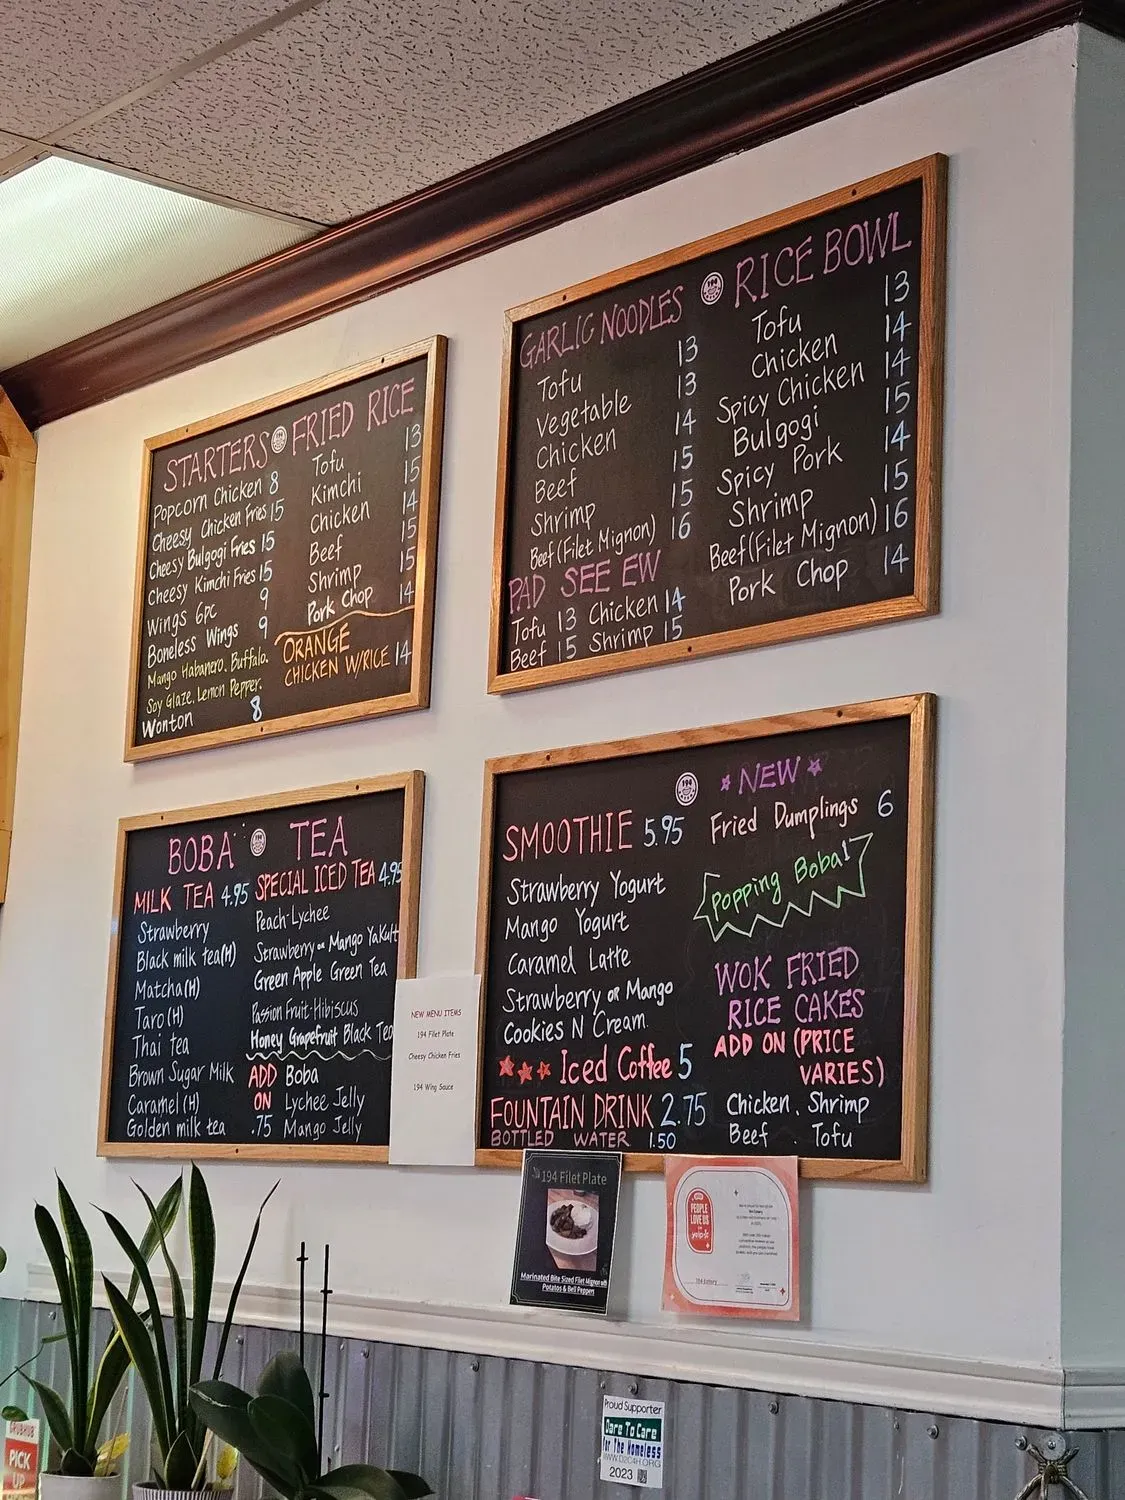 STARTERS FRIED RICE
Popcorn Chicken 8
Cheesy Chicken Fries 15
Cheesy Bulgogi Fries 15
Cheesy Kimchi Fries 15
Wings 6pc 9
Boneless Wings 9
Mango Habanero. Buffalo.
Soy Glaze. Lemon Pepper.
Wonton 8
Tofu 13
Kimchi 15
Chicken 14
Beef 15
Shrimp 15
Pork Chop 14
ORANGE
CHICKEN W/RICE 14
GARLIC NOODLES
Tofu 13
Vegetable 13
Chicken 14
Beef 15
Shrimp 15
Beef (Filet Mignon) 16
PAD SEE EW
Tofu 13 Chicken 14
Beef 15 Shrimp 15
RICE BOWL
Tofu 13
Chicken 14
Spicy Chicken 14
Bulgogi 15
Spicy Pork 14
Shrimp 15
Beef (Filet Mignon) 16
Pork Chop 14
BOBA TEA
MILK TEA 4.95
Strawberry
Black milk tea(H)
Matcha(H)
Taro (H)
Thai tea
Brown Sugar Milk
Caramel (H)
Golden milk tea
SPECIAL ICED TEA 4.95
Peach-Lychee
Strawberry or Mango Yakult
Green Apple Green Tea
Passion Fruit-Hibiscus
Honey Grapefruit Black Tea
ADD Boba
ON Lychee Jelly
.75 Mango Jelly
NEW MENU ITEMS
194 Filet Plate
Cheesy Chicken Fries
194 Wing Sauce
194
SMOOTHIE 5.95
Strawberry Yogurt
Mango Yogurt
Caramel Latte
Strawberry or Mango
Cookies N Cream
Iced Coffee 5
FOUNTAIN DRINK 2.75
BOTTLED WATER 1.50
NEW
Fried Dumplings 6
Popping Boba 1
WOK FRIED
RICE CAKES
ADD ON (PRICE
VARIES)
Chicken . Shrimp
Beef . Tofu
194 Filet Plate
Marinated Bite Sized Filet Mignon with
Potatos & Bell Peppers
PEOPLE
LOVE US
on
yelp
194 Eatery
Proud Supporter
Dare To Care
For The Homeless
WWW.D2C4H.ORG
2023
GRUBHUB
PICK
UP